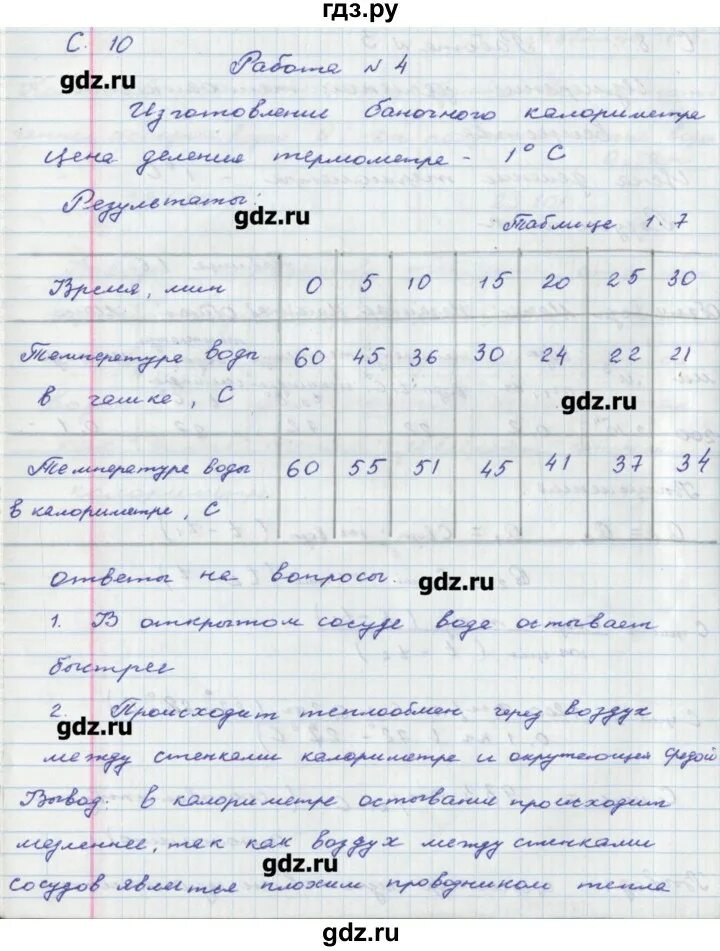 гдз.ру
С. 10
gdz.ru
Работа №4
Изготовление баночного калориметра
Цена деления термометра - 1° С
Результаты:
gdz.ru
Таблица 1.7
Время, мин 0 5 10 15 20 25 30
Температура воды 60 45 36 30 24 22 21
в чашке, С
gdz.ru
Температура воды 60 55 51 45 41 37 34
в калориметре, С
Ответы на вопросы.
gdz.ru
1. В открытом сосуде вода остывает
быстрее
2. Происходит теплообмен через воздух
gdz.ru
между стенками калориметра и окружающей средой
Вывод: в калориметре остывание происходит
медленнее, так как воздух между стенками
gdz.ru
сосудов является плохим проводником тепла
gdz.ru